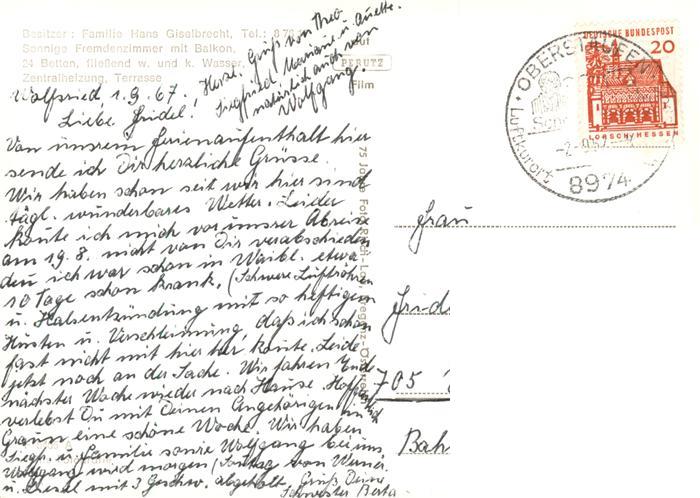 Besitzer: Familie Hans Giselbrecht, Tel.: 8
Sonnige Fremdenzimmer mit Balkon,
24 Betten, fließend w. und k. Wasser,
Zentralheizung, Terrasse
PERUTZ
Film
Herzl. Grüß von Theo
Siegfried Mariane u. Anette.
natürlich auch von
Wolfgang.
Wolfried, 1.9.67.
Liebe Fridel!
Von unserem Ferienaufenthalt hier
sende ich Dir herzliche Grüsse.
Wir haben schon seit wir hier sind
tägl. wunderbares Wetter. Leider
konte ich mich vor unsrer Abreise
am 19.8. nicht von Dir verabschieden
den ich war schon in Waibl. etwa
10 Tage schon krank, (Schwere Luftröhren
u. Halsentzündung mit so heftigem
Husten u. Verschleimung, daß ich schon
fast nicht mit hier her konte. Leide
jetzt noch an der Sache. Wir fahren Ende
nächster Woche wieder nach Hause. Hoffentlich
verlebst Du mit Deinen Angehörigen in
Graun eine schöne Woche. Wir haben
Siegfr. u. Familie sowie Wolfgang bei uns,
Wolfgang wird morgen (Sontag von Werner
u. Liesel mit 3 Geschw. abgeholt. Grüß Deine
Schwester Berta
DEUTSCHE BUNDESPOST
20
LORSCH/HESSEN
OBERSTAUFEN
Luftkurort
8974
Frau
Frid
705
Bah